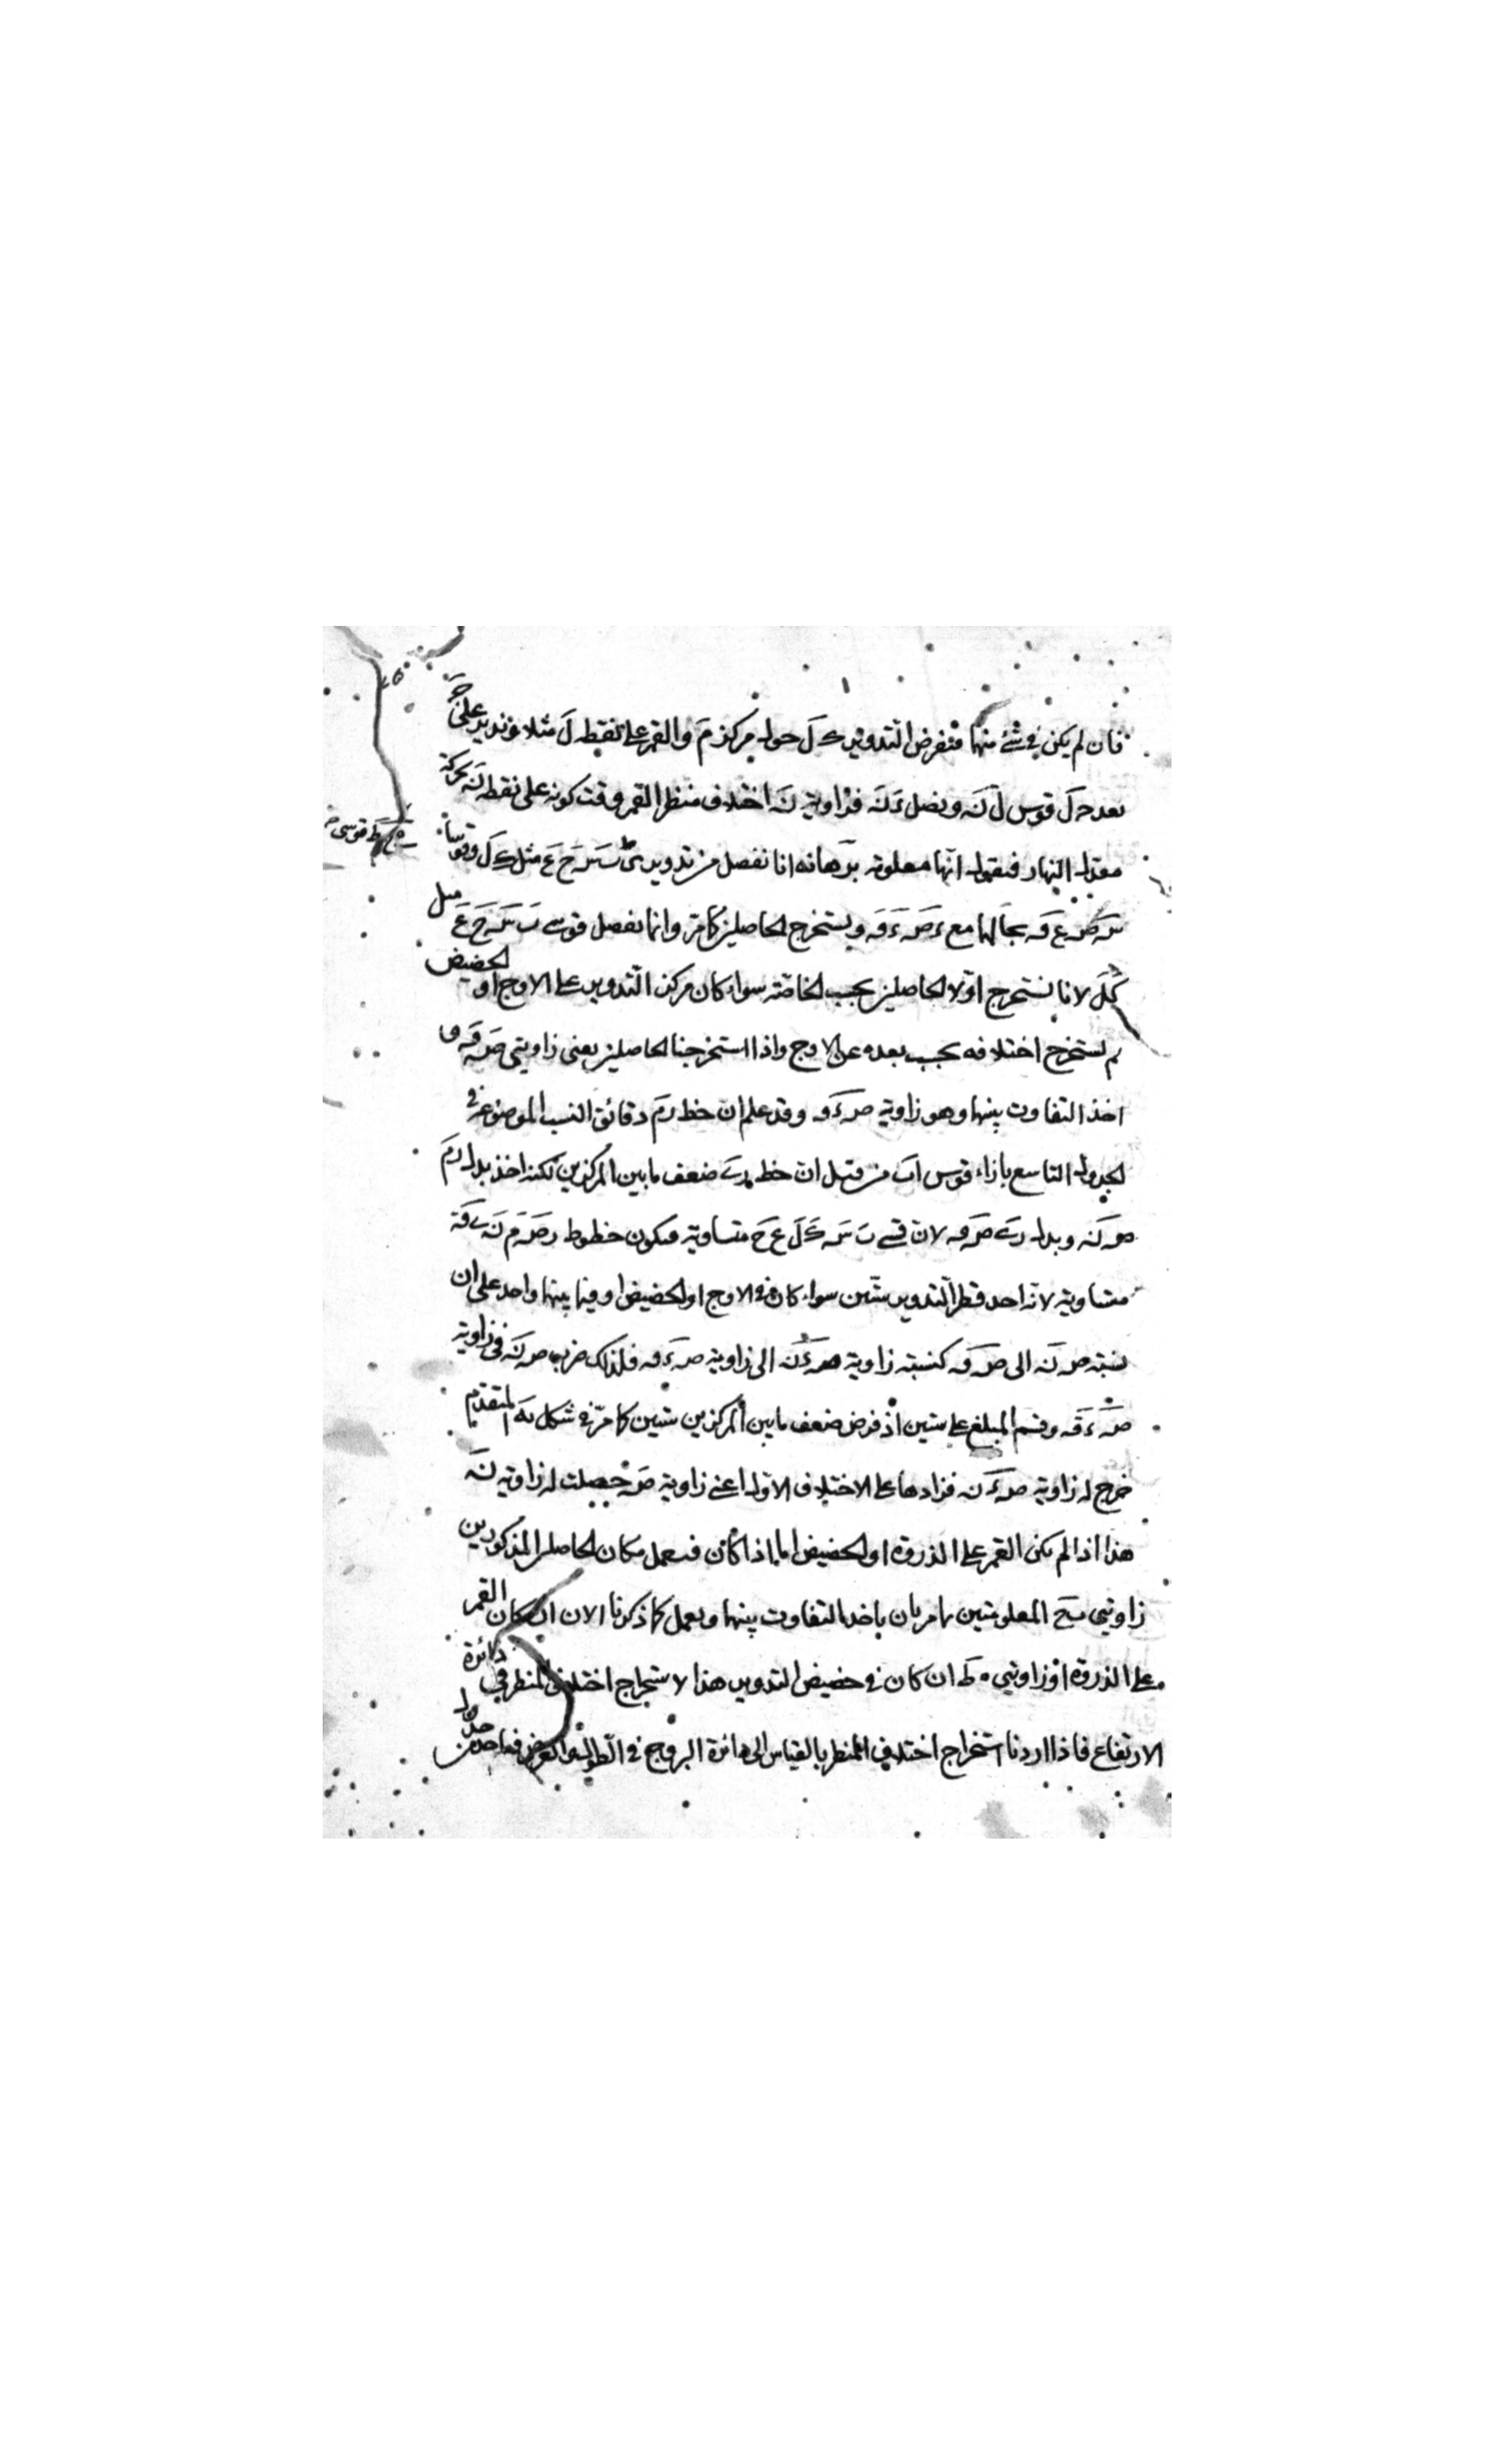 فان لم يكن في شئ منها فنفرض التدوير ك ل حول مركز م والقمر على نقطة ل مثلا وندير على
بعد ح ل قوس ل ن ونصل ء ن فزاوية ن اختلاف منظر القمر وقت كونه على نقطة ن بحركة
معدل النهار فنقول انها معلومة برهانه انا نفصل من تدويرى ب س ح ع مثل ك ل وقوسا
س ص ع ف بحالها مع ء ص ء ف ويستخرج الحاصلين كما مر وانما نفصل قوسي ب س ح ع مثل
ك ل لانا نستخرج اولا الحاصلين بحسب الخاصة سواء كان مركز التدوير على الاوج او الحضيض
ثم نستخرج اختلافه بحسب بعده عن الاوج واذا استخرجنا الحاصلين يعنى زاويتى ص ف
اخذ التفاوت بينهما وهو زاوية ص ء ف وقد علم ان خط ر م دقائق النسب الموضوعة في
الجدول التاسع بازاء قوس ا ب من قبل ان خط ر ى ضعف ما بين المركزين لكنه اخذ بدل ر م
ص ن وبدل ر ى ص ف لان قسي ب س ك ل ع ح متساوية فيكون خطوط ر ص م ن ى ف
متساوية لانه احد قطر التدوير ستين سواء كان في الاوج او الحضيض او فيما بينهما واحد على ان
نسبة ص ن الى ص ف كنسبة زاوية ص ء ن الى زاوية ص ء ف فلذلك ضرب ص ن في زاوية
ص ء ف وقسم المبلغ على ستين اذ فرض ضعف ما بين المركزين ستين كما مر في شكل ى ه المتقدم
خرج له زاوية ص ء ن فزادها على الاختلاف الاول اعني زاوية ص حصلت له زاوية ن
هذا اذا لم يكن القمر على الذروة او الحضيض اما اذا كان فيعمل مكان الحاصلين المذكورين
زاويتي ب ح المعلومتين بما مر بان ياخذ التفاوت بينهما ويعمل كما ذكرنا الان ان كان القمر
على الذروة او زاويتي ه ط ان كان في حضيض التدوير هذا لاستخراج اختلاف المنظر في دائرة
الارتفاع فاذا اردنا استخراج اختلاف المنظر بالقياس الى دائرة البروج في الطول والعرض